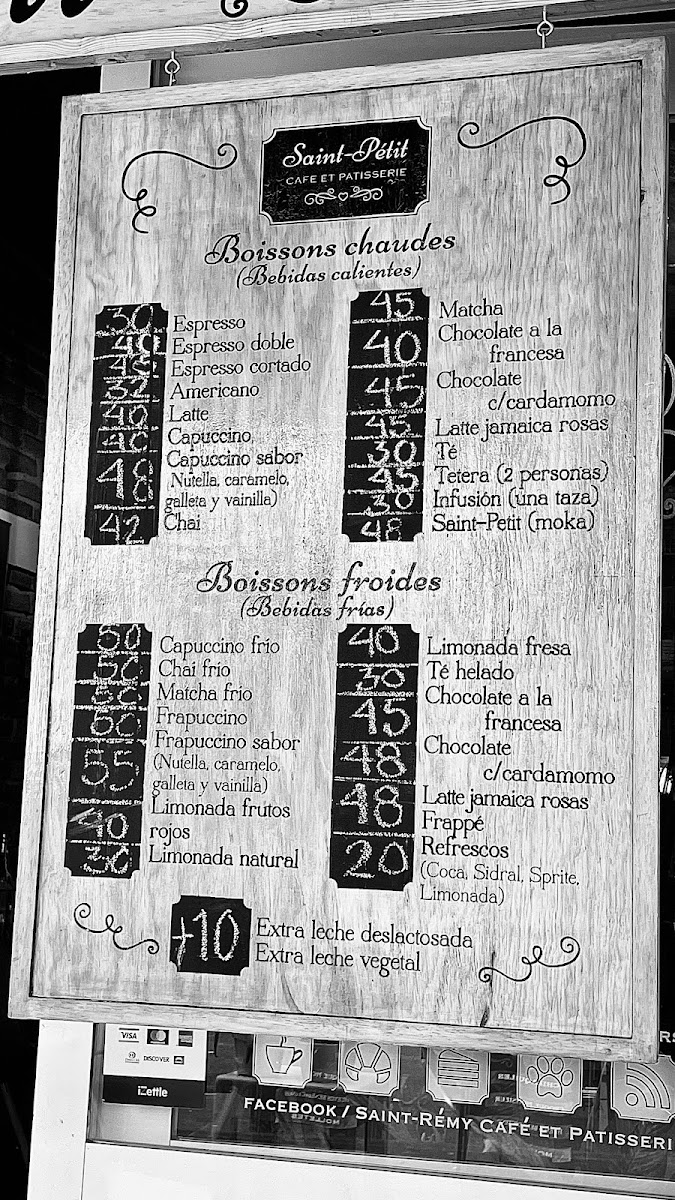 Saint-Pétit
CAFE ET PATISSERIE
Boissons chaudes
(Bebidas calientes)
30 Espresso
40 Espresso doble
Espresso cortado
32 Americano
40 Latte
40 Capuccino,
48 Capuccino sabor
Nutella, caramelo,
galleta y vainilla)
42 Chai
45 Matcha
40 Chocolate a la
francesa
45 Chocolate
c/cardamomo
45 Latte jamaica rosas
30 Té
45 Tetera (2 personas)
30 Infusión (una taza)
48 Saint-Petit (moka)
Boissons froides
(Bebidas frías)
50 Capuccino frío
50 Chai frío
Matcha frio
50 Frapuccino
55 Frapuccino sabor
(Nutella, caramelo,
galleta y vainilla)
40 Limonada frutos
rojos
30 Limonada natural
40 Limonada fresa
30 Té helado
45 Chocolate a la
francesa
48 Chocolate
c/cardamomo
48 Latte jamaica rosas
Frappé
20 Refrescos
(Coca, Sidral, Sprite,
Limonada)
+10 Extra leche deslactosada
Extra leche vegetal
VISA
DISCOVER
iZettle
FACEBOOK / SAINT-RÉMY CAFÉ ET PATISSERI
MOLLETES